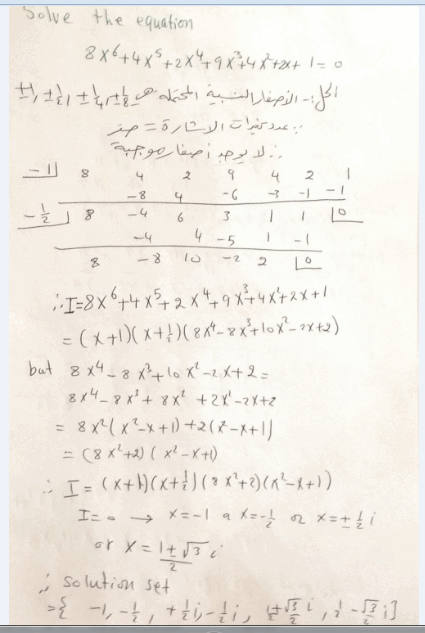 Solve the equation
8x⁶+4x⁵+2x⁴+9x³+4x²+2x+1=0
الحل:- الأصفار النسبية المحتملة هي ±1, ±1/2, ±1/4, ±1/8
∵ عدد تغيرات الاشارة = صفر
∴ لا يوجد أصفار موجبة
-1| 8 4 2 9 4 2 1
-8 4 -6 -3 -1 -1
-1/2| 8 -4 6 3 1 1 |0
-4 4 -5 1 -1
8 -8 10 -2 2 |0
∴ I=8x⁶+4x⁵+2x⁴+9x³+4x²+2x+1
= (x+1)(x+1/2)(8x⁴-8x³+10x²-2x+2)
but 8x⁴-8x³+10x²-2x+2=
8x⁴-8x³+8x²+2x²-2x+2
= 8x²(x²-x+1)+2(x²-x+1)
= (8x²+2)(x²-x+1)
∴ I=(x+1)(x+1/2)(8x²+2)(x²-x+1)
I=0 → x=-1 or x=-1/2 or x=±1/2 i
or x=(1±√3 i)/2
∴ solution set
={ -1, -1/2, +1/2 i, -1/2 i, 1/2+√3/2 i, 1/2-√3/2 i}